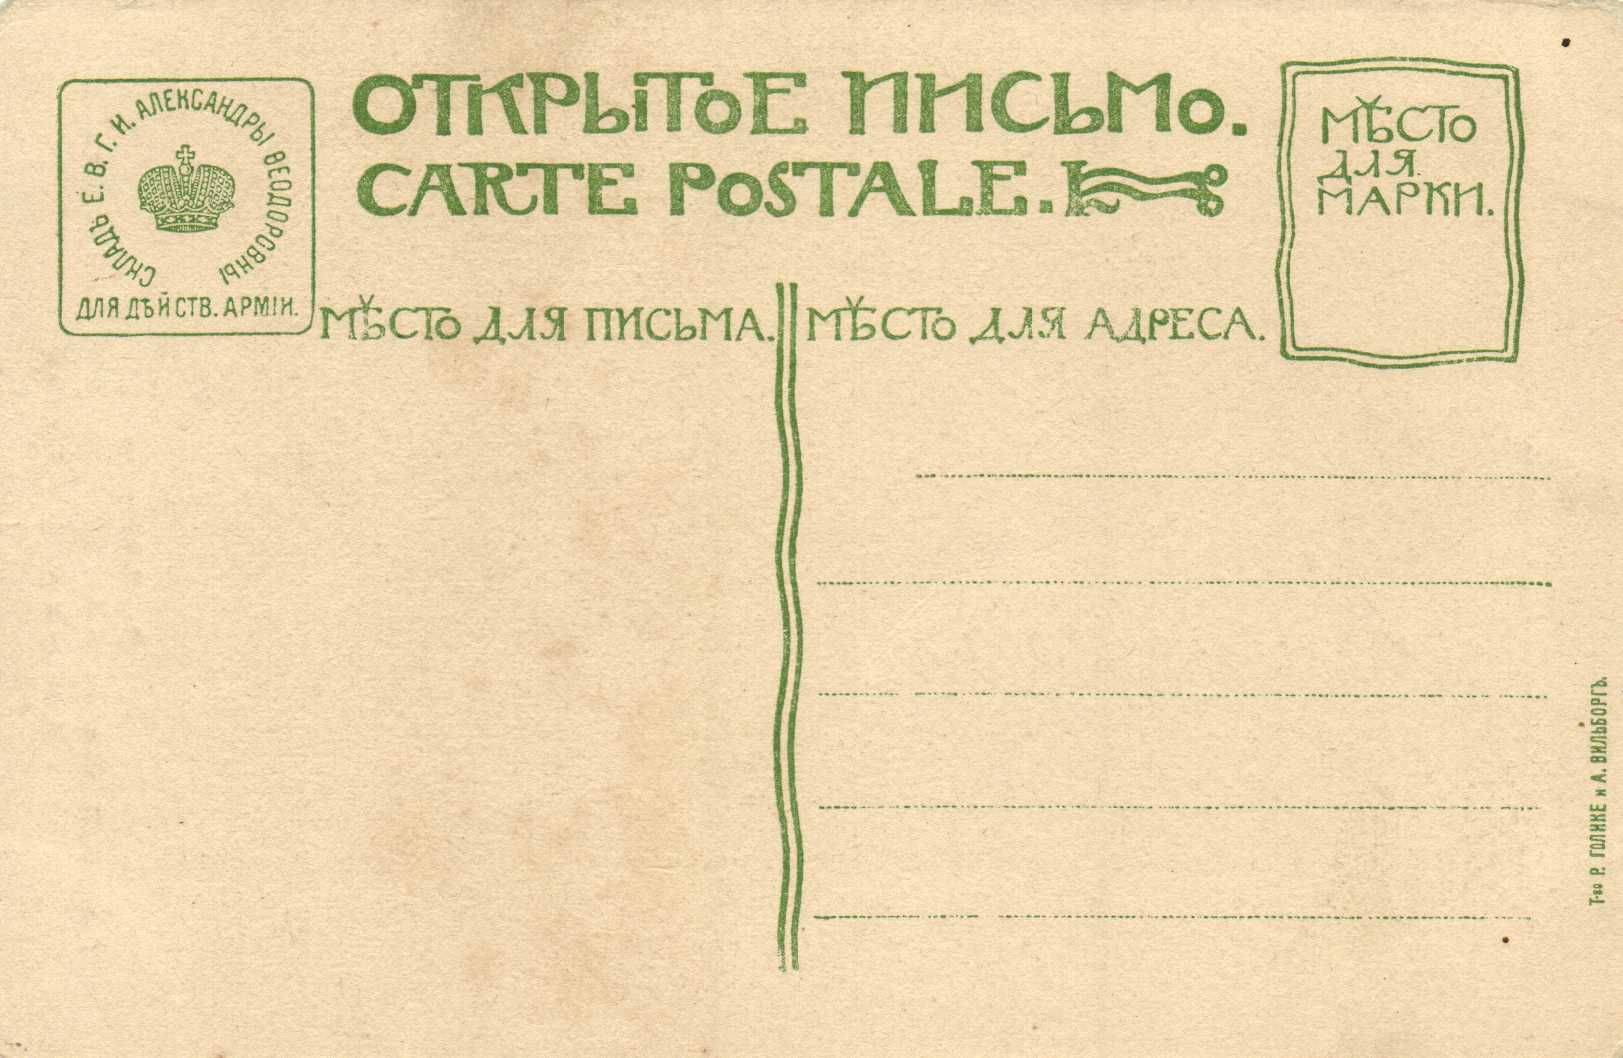 СКЛАДЪ Е. В. Г. И. АЛЕКСАНДРЫ ѲЕОДОРОВНЫ
ДЛЯ ДѢЙСТВ. АРМІИ.
ОТКРЫТОЕ ПИСЬМО.
CARTE POSTALE.
МѢСТО
ДЛЯ
МАРКИ.
МѢСТО ДЛЯ ПИСЬМА.
МѢСТО ДЛЯ АДРЕСА.
Т-во Р. ГОЛИКЕ и А. ВИЛЬБОРГЪ.